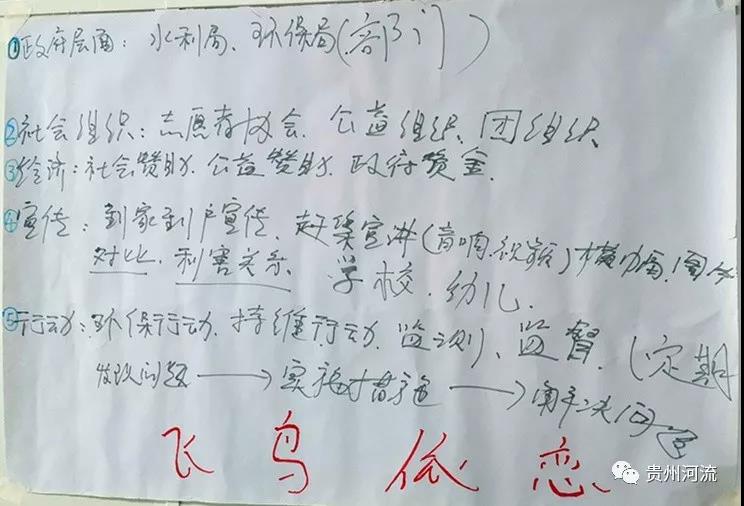 ①政府层面：水利局、环保局(部门)
②社会组织：志愿者协会、公益组织、团组织、
③经济：社会赞助、公益赞助、政府资金、
④宣传：到家到户宣传、赶集宣讲(音响视频)横幅、图片
对比、利害关系 学校、幼儿、
⑤行动：环保行动、持续行动、监测、监督、(定期
发现问题→实施措施→解决问题
飞鸟依恋
贵州河流